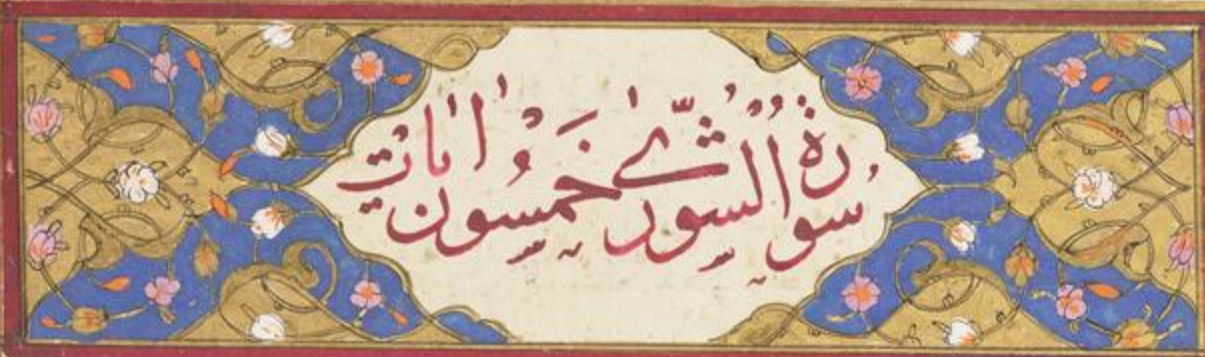 سورة الشورى خمسون ايات